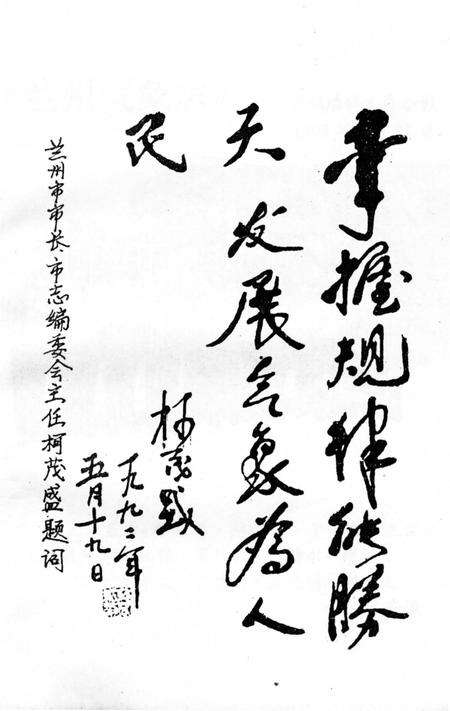 掌握规律能勝
天发展气象為人
民
柯茂盛
一九九二年
五月十九日
兰州市市长、市志编委会主任柯茂盛题词